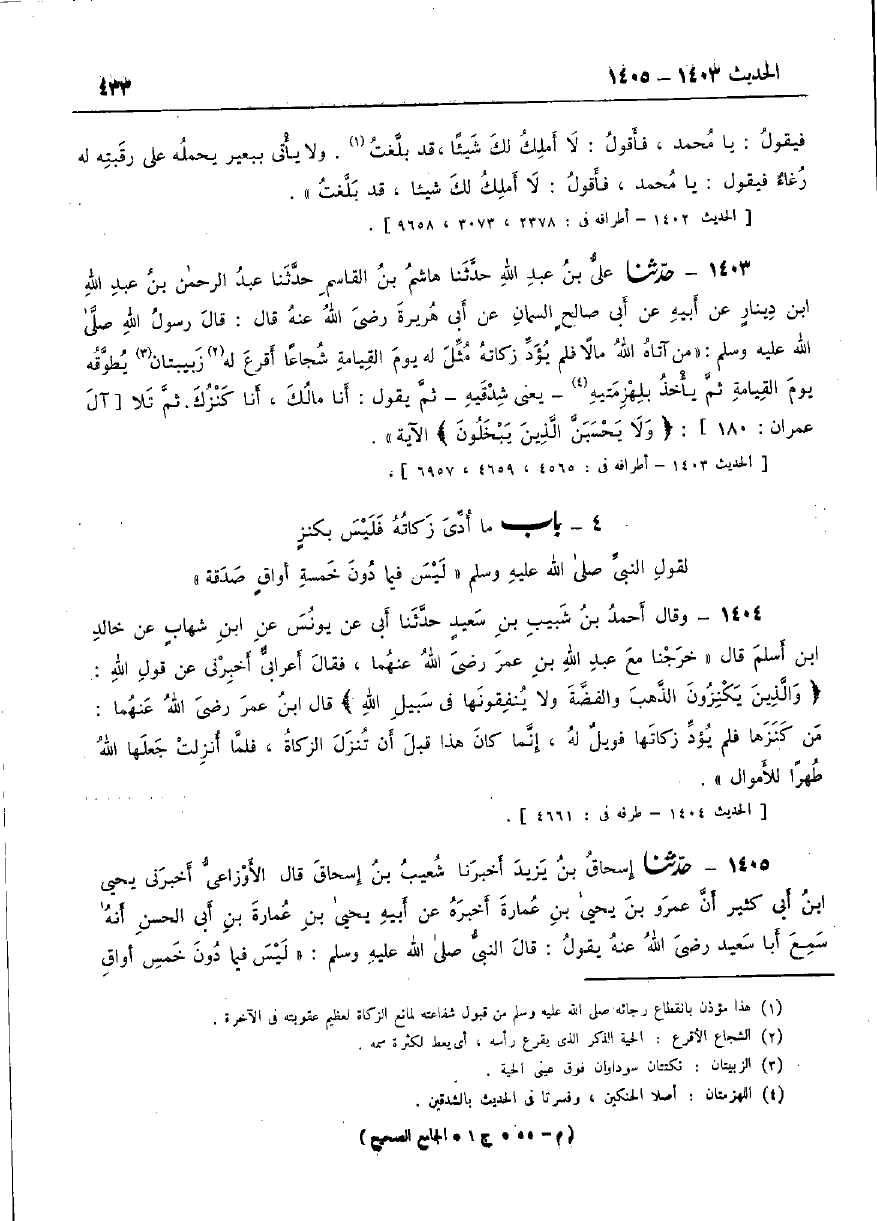 الحديث ١٤٠٣ – ١٤٠٥
٤٣٣
فيقولُ : يا مُحمد ، فأَقولُ : لَا أملِكُ لكَ شَيئًا ،قد بلَّغتُ (١) . ولا يأْتى ببعير يحملُه على رقَبتِه له
رُغاءٌ فيقول : يا مُحمد ، فأقولُ : لَا أملِكُ لكَ شيئا ، قد بَلَّغتُ » .
[ الحديث ١٤٠٢ – أطرافه فى : ٢٣٧٨ ، ٣٠٧٣ ، ٩٦٥٨ ] .
١٤٠٣ – حدّثنا علىُّ بنُ عبدِ اللهِ حدَّثَنا هاشمُ بنُ القاسمِ حدَّثَنا عبدُ الرحمٰن بنُ عبدِ اللهِ
ابن دِينارٍ عن أبيهِ عن أبى صالحٍ السمانِ عن أبى هُريرةَ رضىَ اللهُ عنهُ قال : قالَ رسولُ اللهِ صلَّى
الله عليه وسلم :« من آتاهُ اللهُ مالًا فلم يُؤَدِّ زكاتهُ مُثِّلَ له يومَ القيامةِ شُجاعًا أقرعَ له(٢) زَبيبتان(٣) يُطوَّقُه
يومَ القِيامةِ ثمَّ يأْخذُ بلِهزِمَتيهِ(٤) – يعنى شِدْقَيهِ – ثمَّ يقول : أنا مالُكَ ، أنا كَنْزُكَ. ثم تَلا [ آلَ
عمران : ١٨٠ ] : ﴿ وَلَا يَحْسَبَنَّ الَّذِينَ يَبْخَلُونَ ﴾ الآية» .
[ الحديث ١٤٠٣ – أطرافه فى : ٤٥٦٥ ، ٤٦٥٩ ، ٦٩٥٧ ] .
٤ – باب ما أُدِّىَ زَكاتُهُ فَلَيْسَ بكنزٍ
لقولِ النبىِّ صلىٰ الله عليهِ وسلم « لَيْسَ فيما دُونَ خَمسةِ أواقٍ صَدَقة »
١٤٠٤ – وقال أحمدُ بنُ شَبيبِ بنِ سَعيدٍ حدَّثَنا أبى عن يونُسَ عنِ ابنِ شهابٍ عن خالدِ
ابن أسلمَ قال « خرَجْنا معَ عبدِ اللهِ بنِ عمرَ رضىَ اللهُ عنهُما ، فقالَ أعرابىٌّ أخبِرْنى عن قولِ اللهِ :
﴿ وَالَّذِينَ يَكْنِزُونَ الذَّهبَ والفضَّةَ ولا يُنفِقونَها فى سَبيلِ اللهِ ﴾ قال ابنُ عمرَ رضىَ اللهُ عَنهُما :
مَن كَنَزَها فلم يُؤدِّ زكاتَها فويلٌ لهُ ، إنَّما كانَ هذا قبلَ أن تُنزَلَ الزكاةُ ، فلمَّا أُنزِلتْ جَعلَها اللهُ
طُهرًا للأَموال » .
[ الحديث ١٤٠٤ – طرفه فى : ٤٦٦١ ] .
١٤٠٥ – حدّثنا إسحاقُ بنُ يَزيدَ أخبرَنا شُعيبُ بنُ إسحاقَ قال الأَوْزاعىُّ أخبرَنى يحيى
ابنُ أبى كثير أنَّ عمرَو بنَ يحيىٰ بنِ عُمارةَ أخبرَهُ عن أبيهِ يحيىٰ بنِ عُمارةَ بنِ أبى الحسنِ أنهُ
سَمِعَ أبا سَعيد رضىَ اللهُ عنهُ يقولُ : قالَ النبىُّ صلىٰ الله عليهِ وسلم : « لَيْسَ فيما دُونَ خَمسِ أواقٍ
(١) هذا مؤذن بانقطاع رجائه صلى الله عليه وسلم من قبول شفاعته لمانع الزكاة لعظيم عقوبته فى الآخرة .
(٢) الشجاع الأقرع : الحية الذكر الذى يقرع رأسه ، أى يمعط لكثرة سمه .
(٣) الزبيبتان : نكتتان سوداوان فوق عينى الحية .
(٤) اللهزمتان : أصلا الحنكين ، وفسرتا فى الحديث بالشدقين .
( م – ٥٥ • ج ١ • الجامع الصحيح )